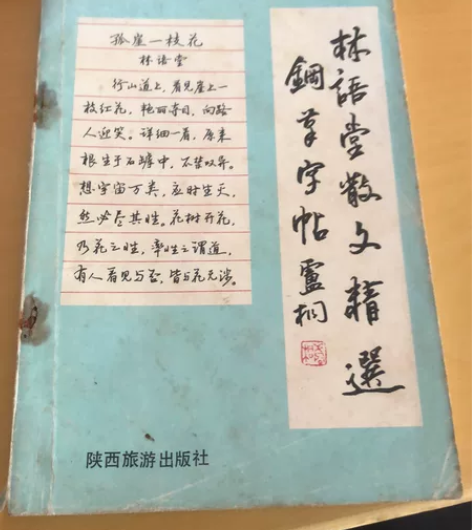 林語堂散文精選
鋼筆字帖 盧桐
孤崖一枝花
林语堂
行山道上，看见崖上一
枝红花，艳丽夺目，向路
人迎笑。详细一看，原来
根生于石罅中，不禁叹异。
想宇宙万类，应时生灭，
然必尽其性。花树开花，
乃花之性，率性之谓道，
有人看见与否，皆与花无涉。
陕西旅游出版社